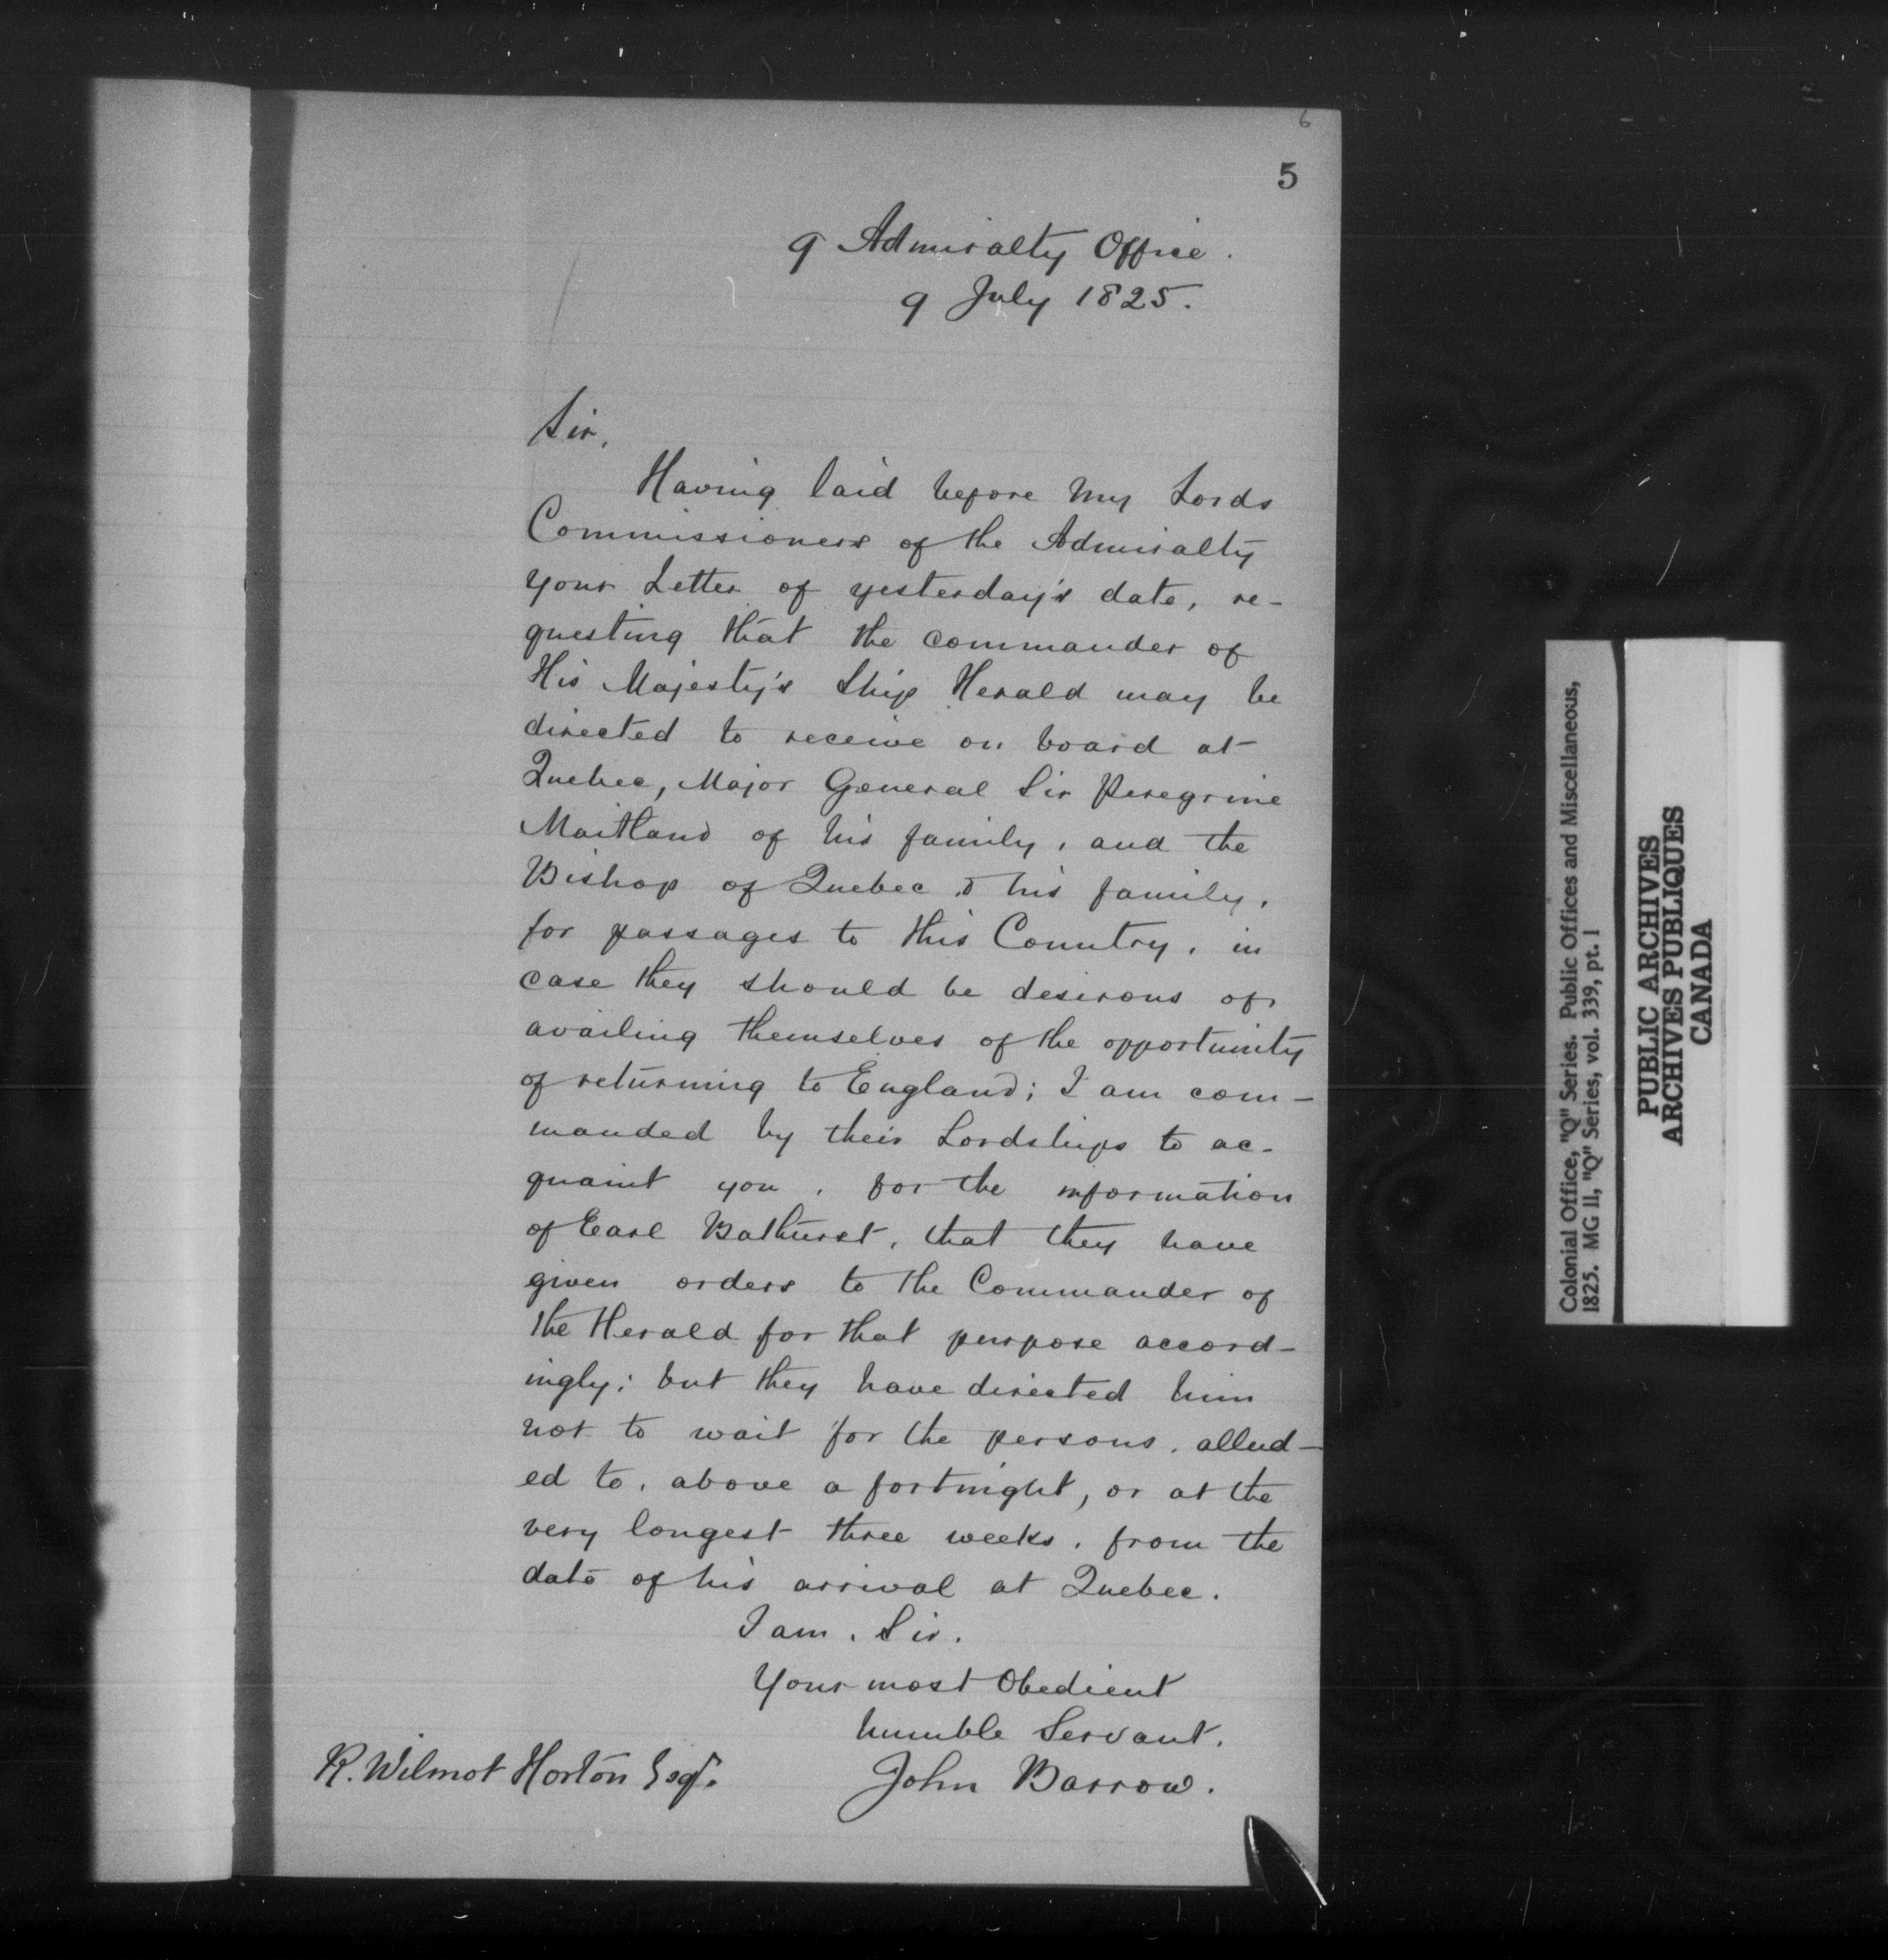 6
5
9 Admiralty Office.
9 July 1825.
Sir,
Having laid before My Lords
Commissioners of the Admiralty
your Letter of yesterday's date, re-
questing that the commander of
His Majesty's Ship Herald may be
directed to receive on board at
Quebec, Major General Sir Peregrine
Maitland of his family, and the
Bishop of Quebec & his family,
for passages to this Country, in
case they should be desirous of
availing themselves of the opportunity
of returning to England; I am com-
manded by their Lordships to ac-
quaint you, for the information
of Earl Bathurst, that they have
given orders to the Commander of
the Herald for that purpose accord-
ingly; but they have directed him
not to wait for the persons, allud-
ed to, above a fortnight, or at the
very longest three weeks, from the
date of his arrival at Quebec.
I am, Sir.
Your most Obedient
humble Servant.
John Barrow.
R. Wilmot Horton Esqr.
Colonial Office, "Q" Series. Public Offices and Miscellaneous,
1825. MG 11, "Q" Series, vol. 339, pt. 1
PUBLIC ARCHIVES
ARCHIVES PUBLIQUES
CANADA